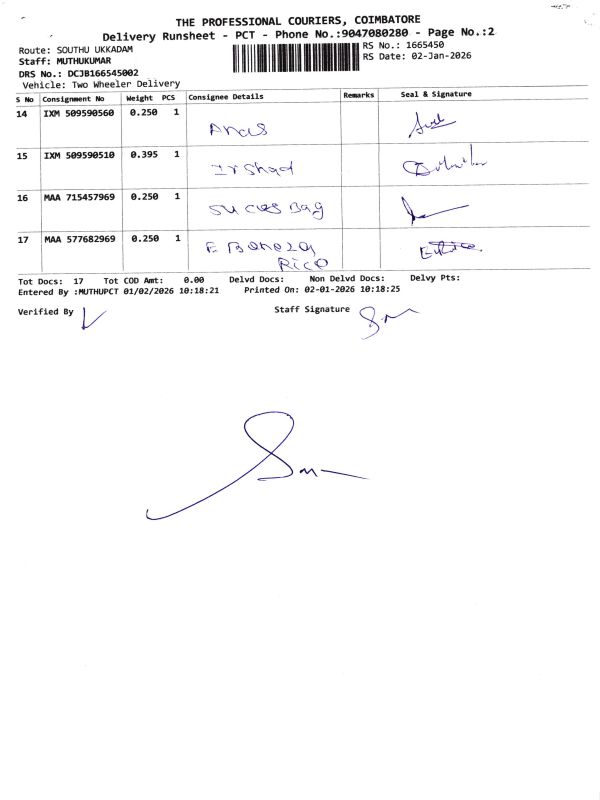 THE PROFESSIONAL COURIERS, COIMBATORE
Delivery Runsheet - PCT - Phone No.:9047080280 - Page No.:2
Route: SOUTHU UKKADAM
RS No.: 1665450
Staff: MUTHUKUMAR
RS Date: 02-Jan-2026
DRS No.: DCJB166545002
Vehicle: Two Wheeler Delivery
S No Consignment No Weight PCS Consignee Details Remarks Seal & Signature
14 IXM 509590560 0.250 1 Anas
15 IXM 509590510 0.395 1 Irshad
16 MAA 715457969 0.250 1 Sucess Bag
17 MAA 577682969 0.250 1 E Banezar
Rico
Tot Docs: 17 Tot COD Amt: 0.00 Delvd Docs: Non Delvd Docs: Delvy Pts:
Entered By :MUTHUPCT 01/02/2026 10:18:21 Printed On: 02-01-2026 10:18:25
Verified By Staff Signature